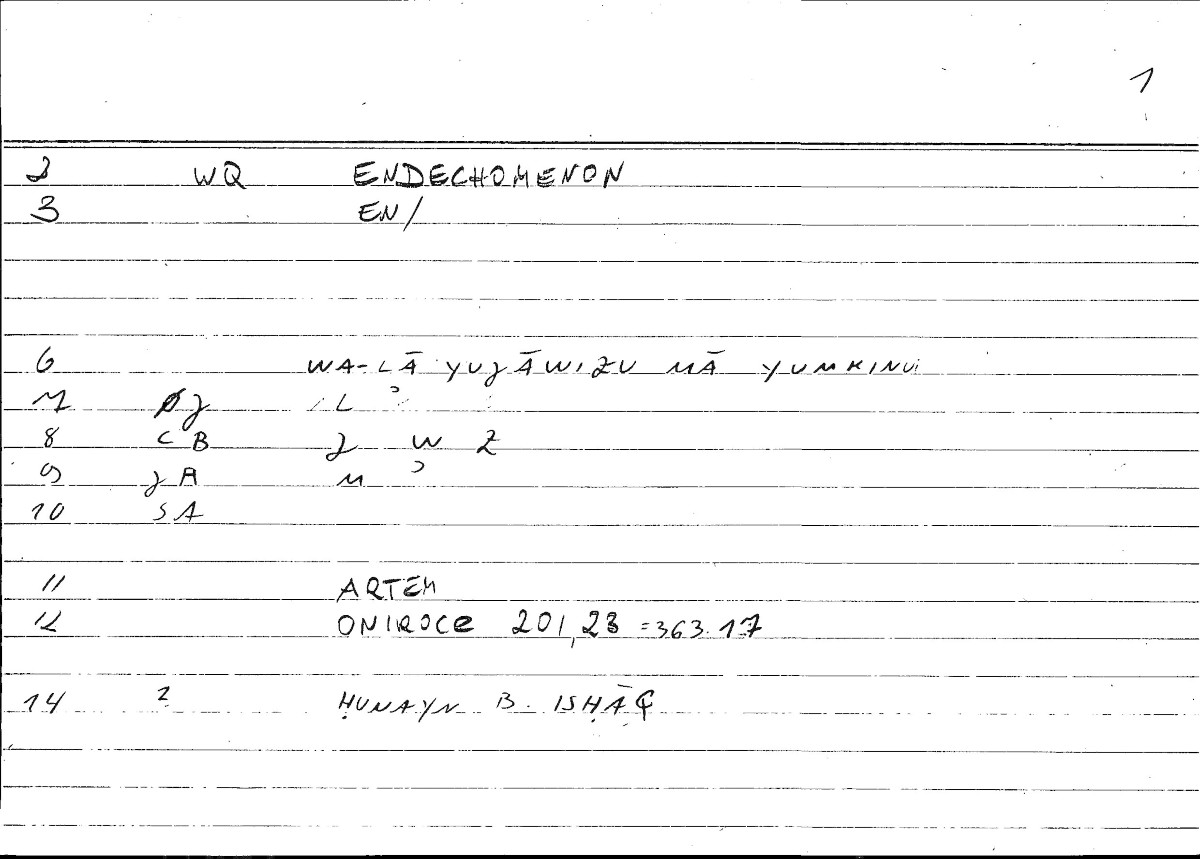 1
2 WQ ENDECHOMENON
3 EN/
6 WA-LĀ YUJĀWIZU MĀ YUMKINU
7 ØJ L ʾ
8 CB J W Z
9 JA M ʾ
10 SA
11 ARTEM
12 ONIROCE 201,23 =363.17
14 2 ḤUNAYN B. ISḤĀQ